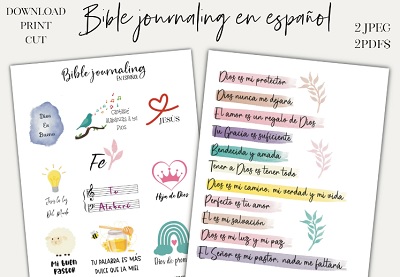 DOWNLOAD
PRINT
CUT
Bible journaling en español
2 JPEG
2PDFS
Bible journaling
EN ESPAÑOL
Dios
Es
Bueno
Dios
JESÚS
Fe
Jesús la luz
Del Mundo
Tu
Alabaré
Hija de Dios
Mi buen
Pastor
TU PALABRA ES MÁS
DULCE QUE LA MIEL
Dios de
Dios es mi protector
Dios nunca me dejará
El amor es un regalo de Dios
Tu Gracia es suficiente
Bendecida y amada
Tener a Dios es tenerlo todo
Dios es mi camino, mi verdad y mi vida
Perfecto es tu amor
El es mi salvación
Dios es mi luz y mi paz
El Señor es mi pastor, nada me faltará